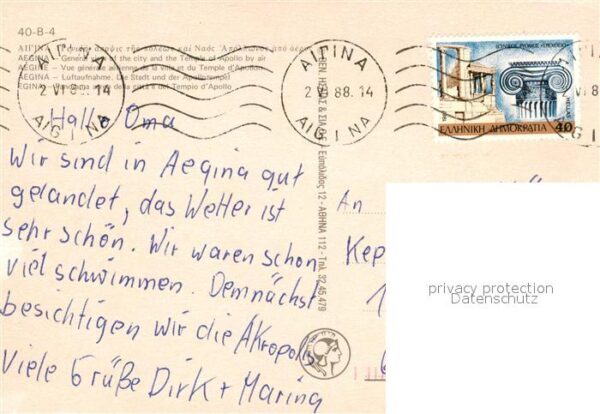 40-B-4
ΑΙΓΙΝΑ
AEGINA – General view of the city and the Temple of Apollo by air
AEGINE – Vue générale aérienne de la cité et du Temple d'Apollon
AEGINA – Luftaufnahme. Die Stadt und der Apollotempel
AEGINA – Panorama aereo della città e del Tempio d'Apollo
ΑΙΓΙΝΑ
2 VI 88. 14
AIGINA
ΑΙΓΙΝΑ
2 VI 88. 14
AIGINA
ΕΛΛΗΝΙΚΗ ΔΗΜΟΚΡΑΤΙΑ 40
HELLAS
Hallo Oma
Wir sind in Aegina gut
gelandet, das Wetter ist
sehr schön. Wir waren schon
viel schwimmen. Demnächst
besichtigen wir die Akropolis
Viele Grüße Dirk + Marina
12 - ΑΘΗΝΑ 112 - Τηλ. 32.45.479
An
Kep
1
privacy protection
Datenschutz